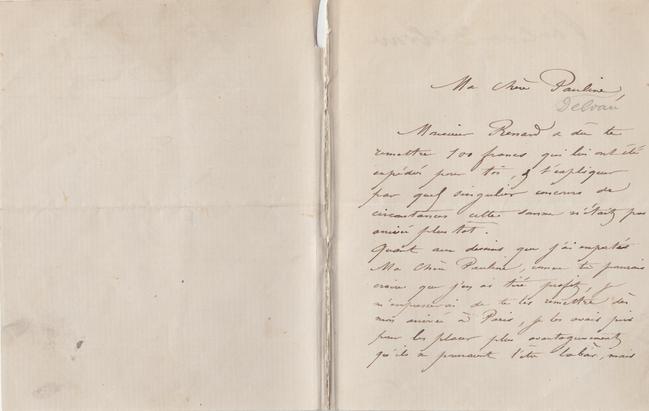 Ma chère Pauline,
Monsieur Renard a dû te
remettre 100 francs qui lui ont été
expédiés pour toi, & t'expliquer
par quel singulier concours de
circonstances cette somme n'était pas
arrivée plus tôt.
Quant aux dessins que j'ai emportés
Ma chère Pauline, comme tu pourrais
croire que j'en ai tiré profit, je
m'empresserai de te les remettre dès
mon arrivée à Paris, je les avais pris
pour les placer plus avantageusement
qu'ils à pouvaient l'être là bas, mais